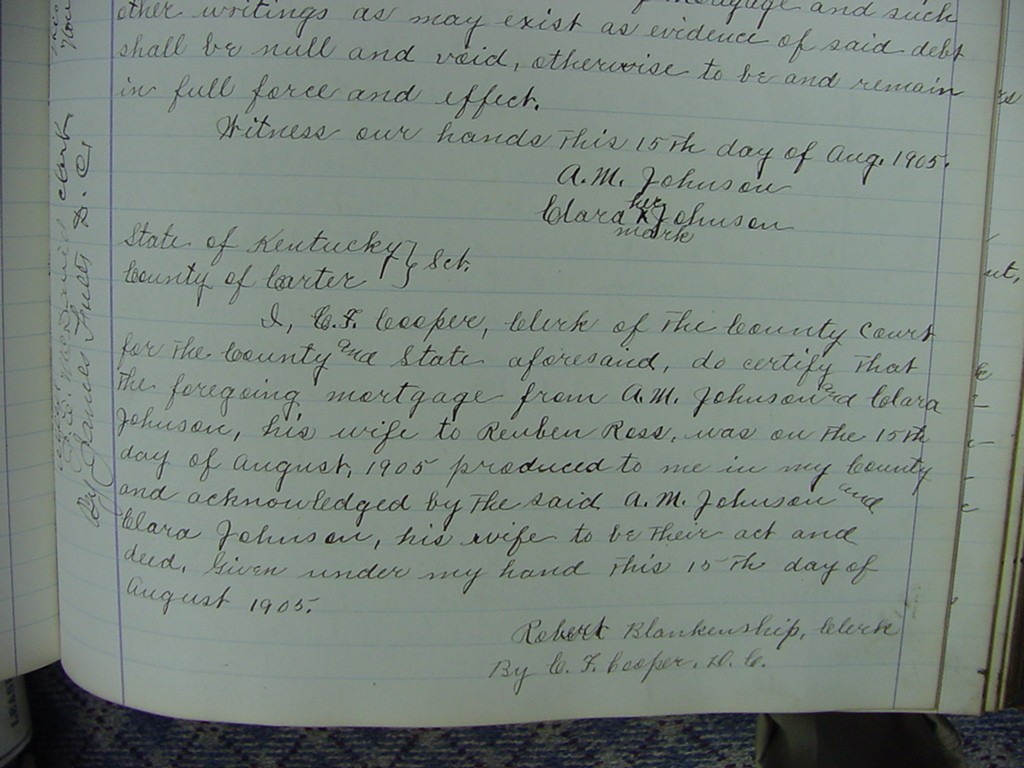 mortgage and such
other writings as may exist as evidence of said debt
shall be null and void, otherwise to be and remain
in full force and effect.
Witness our hands this 15th day of Aug. 1905.
A.M. Johnson
her
Clara X Johnson
mark
State of Kentucky } Sct.
County of Carter
I, C.F. Cooper, Clerk of the County Court
for the County and State aforesaid, do certify that
the foregoing mortgage from A.M. Johnson and Clara
Johnson, his wife to Reuben Ross, was on the 15th
day of August, 1905 produced to me in my County
and acknowledged by the said A.M. Johnson and
Clara Johnson, his wife to be their act and
deed. Given under my hand this 15th day of
August 1905.
Robert Blankenship, Clerk
By C.F. Cooper. D.C.
clerk
By James D.C.